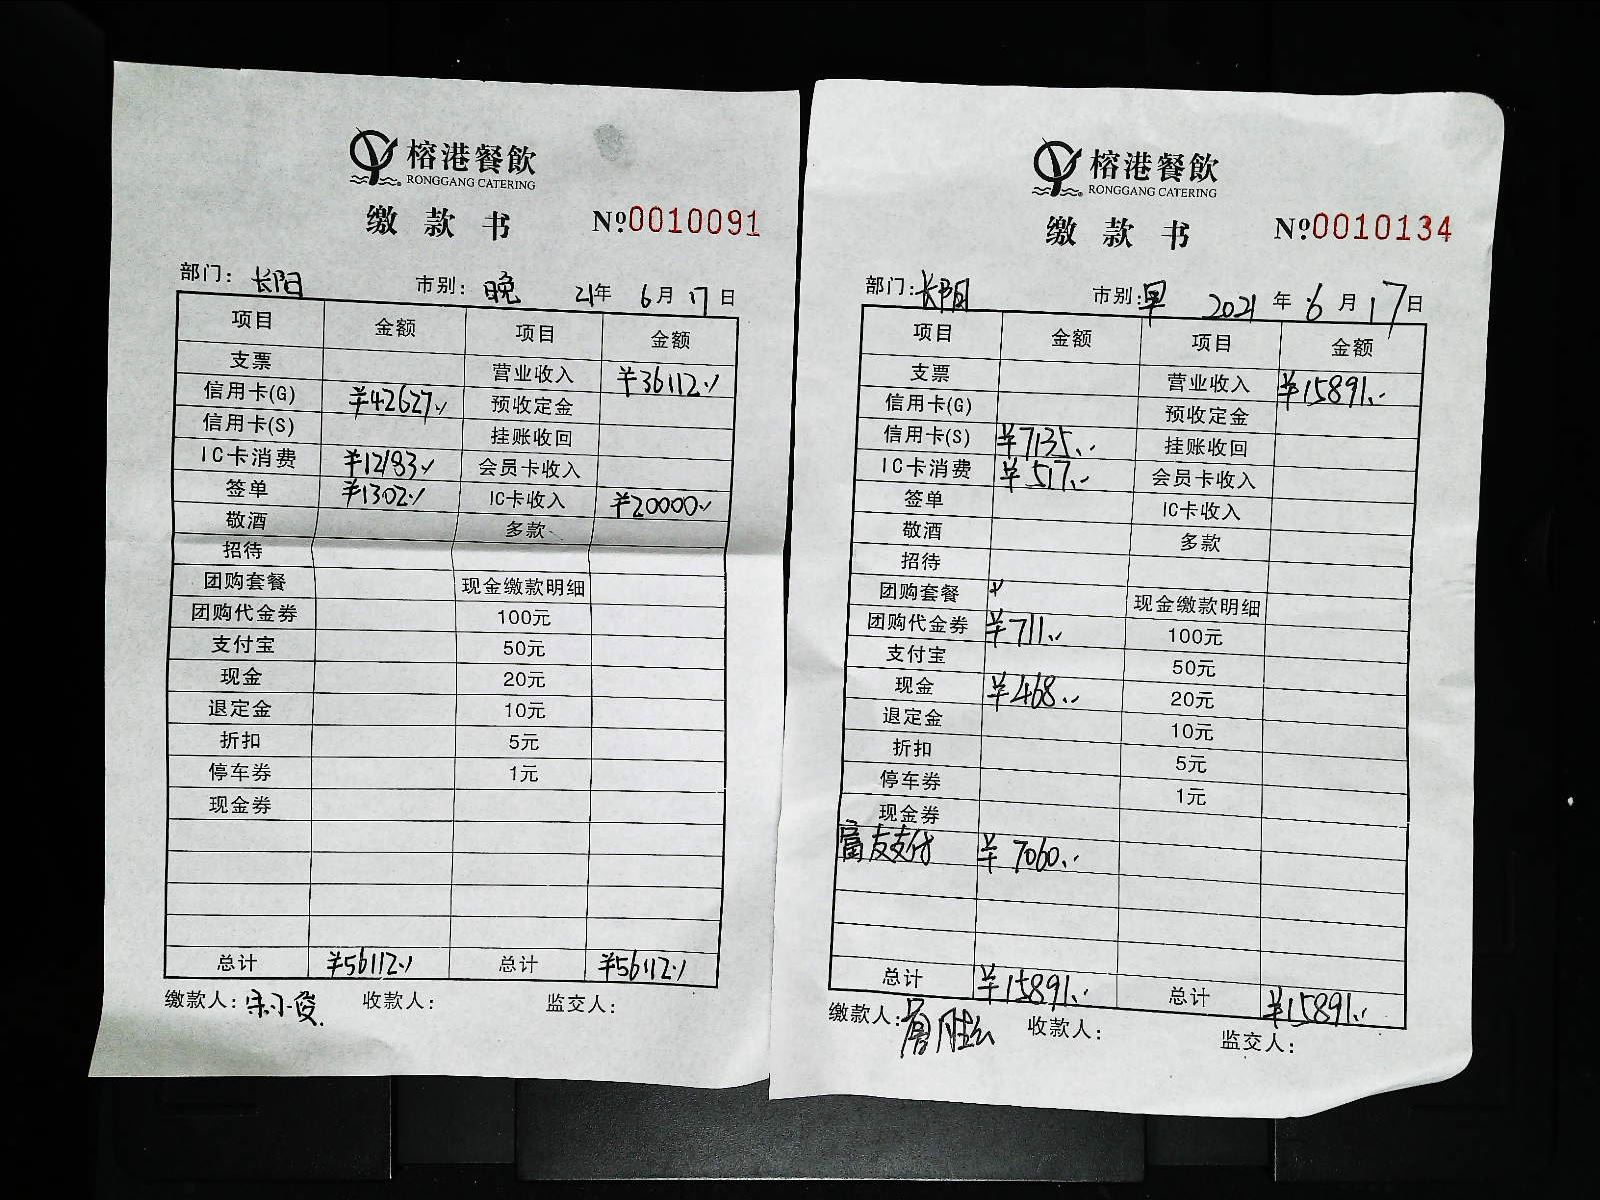 榕港餐飲
RONGGANG CATERING
缴款书 №0010091
部门: 长阳 市别: 晚 21年 6月 17日
项目 金额 项目 金额
支票 营业收入 ¥36112.-
信用卡(G) ¥42627.- 预收定金
信用卡(S) 挂账收回
IC卡消费 ¥12183.- 会员卡收入
签单 ¥1302.- IC卡收入 ¥20000.-
敬酒 多款
招待
团购套餐 现金缴款明细
团购代金券 100元
支付宝 50元
现金 20元
退定金 10元
折扣 5元
停车券 1元
现金券
总计 ¥56112.- 总计 ¥56112.-
缴款人: 宋小俊 收款人: 监交人:
榕港餐飲
RONGGANG CATERING
缴款书 №0010134
部门: 长阳 市别: 早 2021年 6月 17日
项目 金额 项目 金额
支票 营业收入 ¥15891.-
信用卡(G) 预收定金
信用卡(S) ¥7135.- 挂账收回
IC卡消费 ¥517.- 会员卡收入
签单 IC卡收入
敬酒 多款
招待
团购套餐 ¥ 现金缴款明细
团购代金券 ¥711.- 100元
支付宝 50元
现金 ¥468.- 20元
退定金 10元
折扣 5元
停车券 1元
现金券
富友支付 ¥7060.-
总计 ¥15891.- 总计 ¥15891.-
缴款人: 收款人: 监交人: